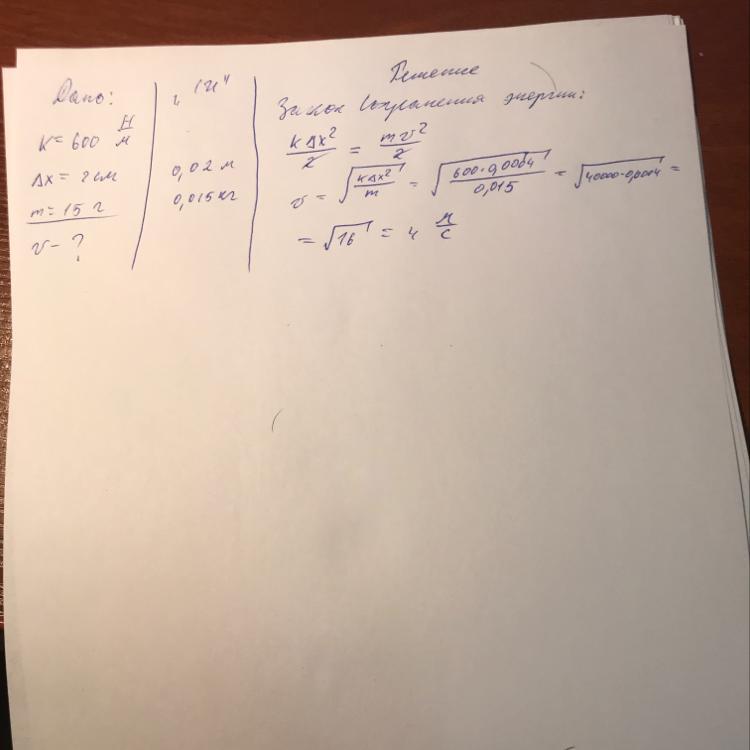 Дано:
K = 600 Н/м
Δx = 2 см
m = 15 г
v - ?
"СИ"
0,02 м
0,015 кг
Решение
Закон сохранения энергии:
kΔx²/2 = mv²/2
v = √(kΔx²/m) = √(600·0,0004/0,015) = √(40000·0,0004) =
= √16 = 4 м/с